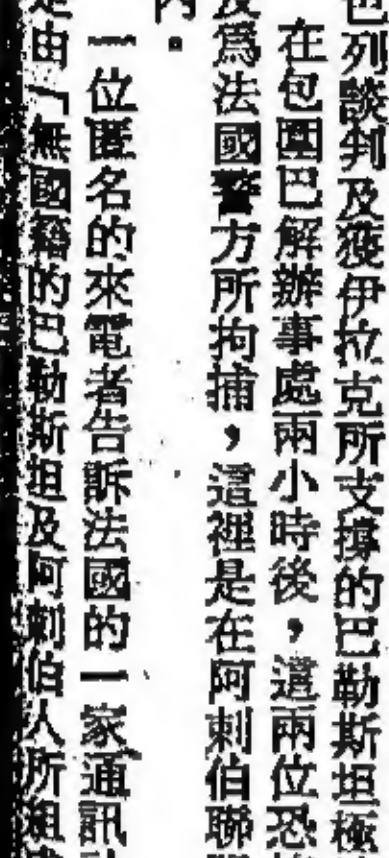 列談判及獲伊拉克所支撐的巴勒斯坦極
在包圍巴解辦事處兩小時後，這兩位恐
為法國警方所拘捕，這裡是在阿剌伯聯
內。
一位匿名的來電者告訴法國的一家通訊
由「無國籍的巴勒斯坦及阿剌伯人所組